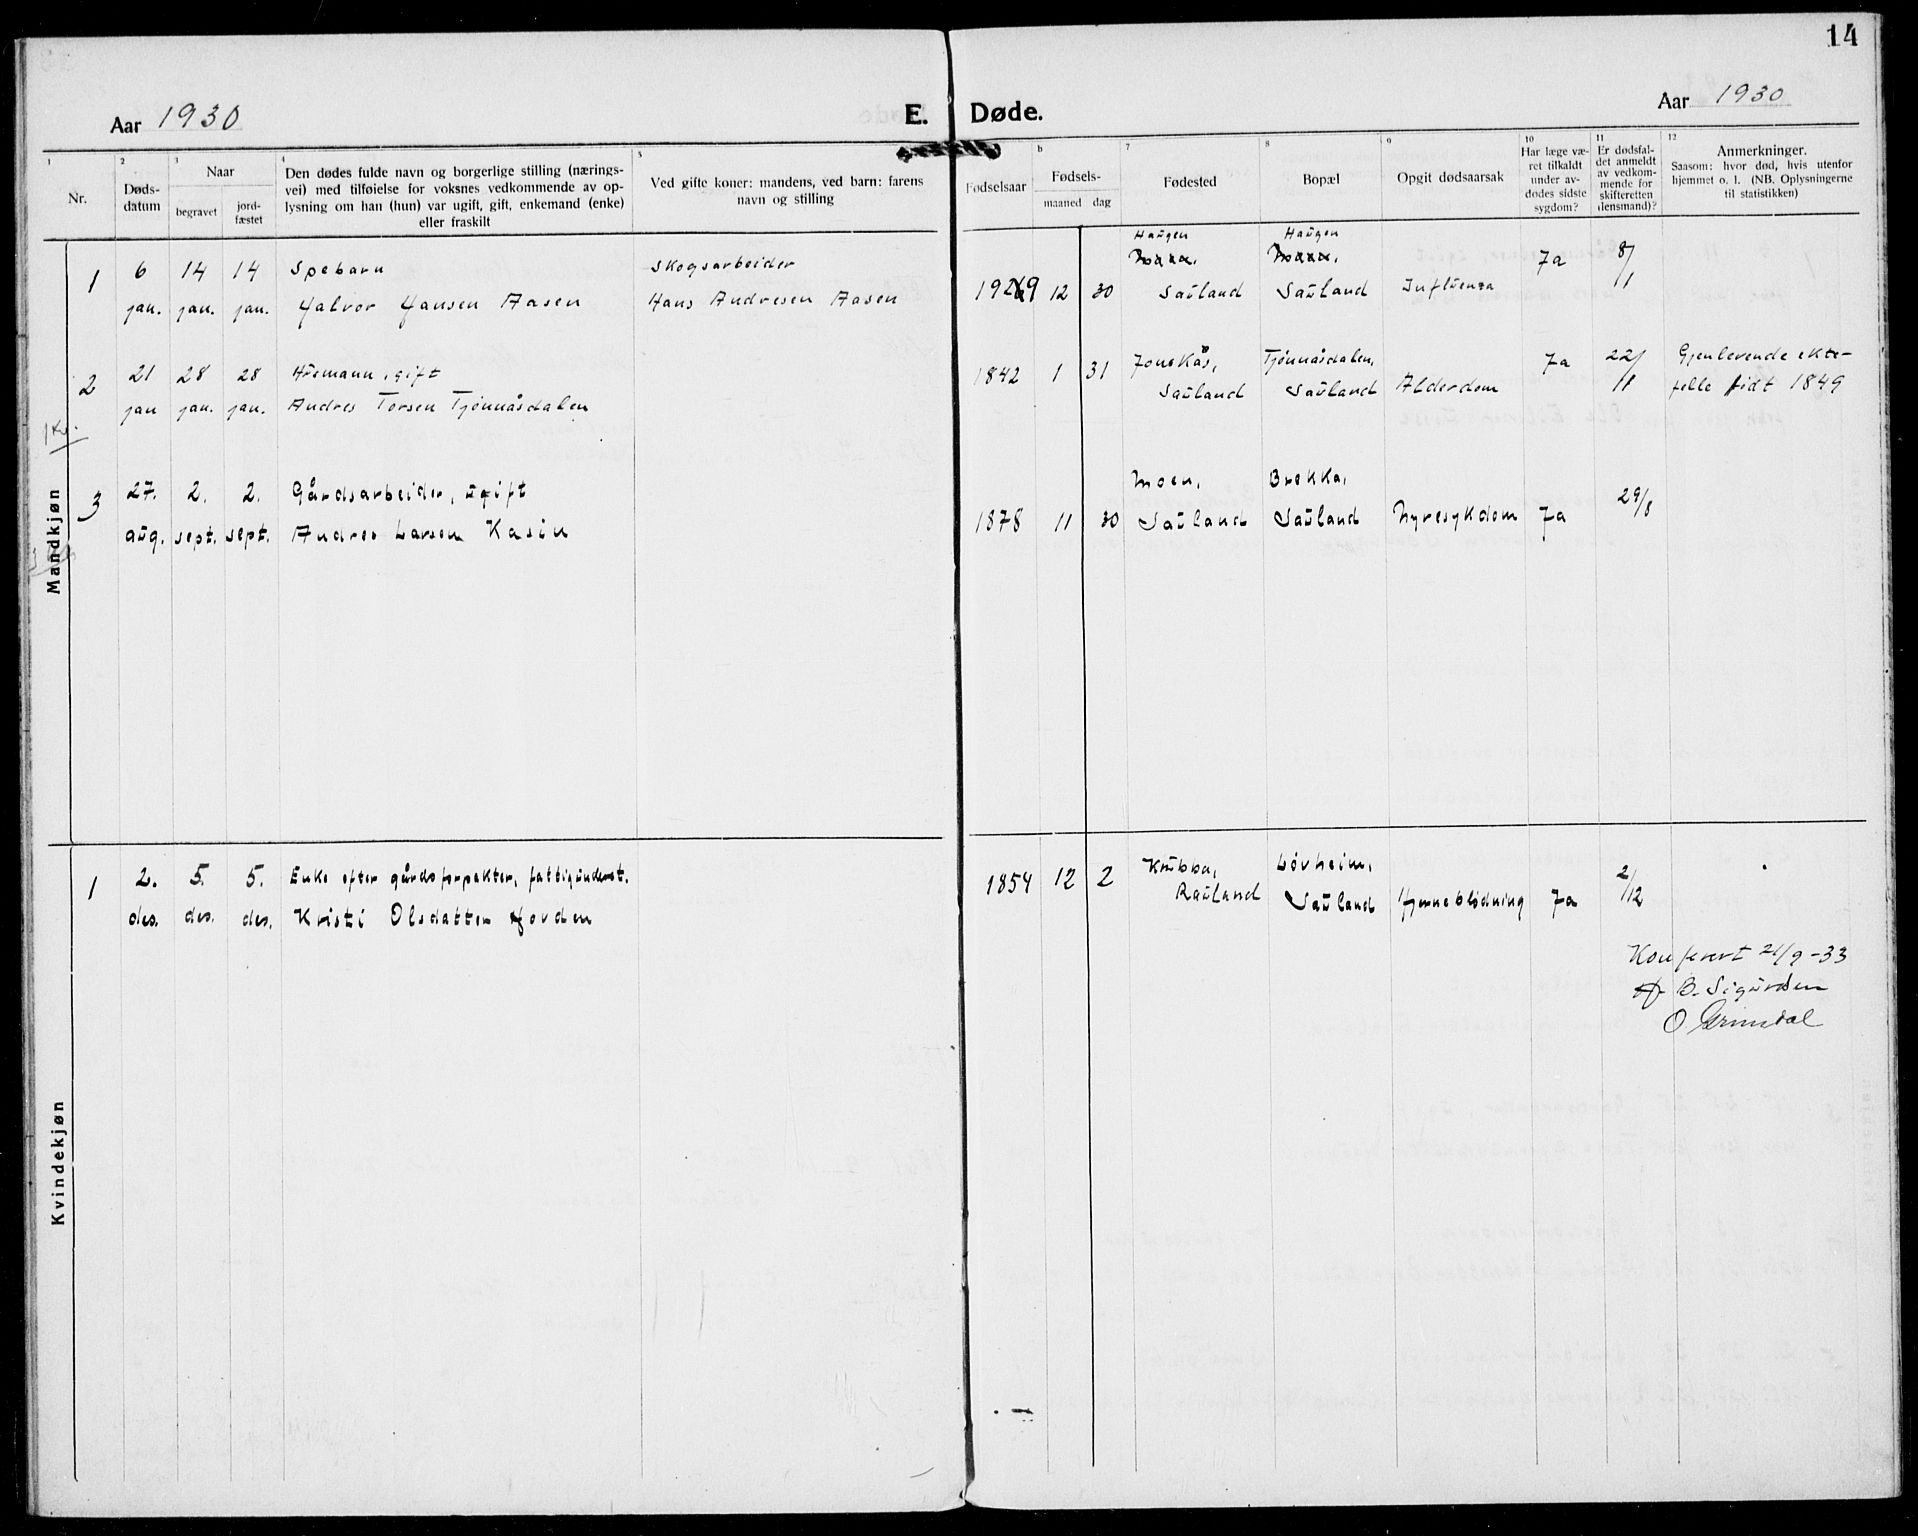 14
Aar 1930
E. Døde.
Aar 1930
1 Nr.
2 Døds-
datum
3 Naar
begravet
jord-
fæstet
4 Den dødes fulde navn og borgerlige stilling (nærings-
vei) med tilføielse for voksnes vedkommende av op-
lysning om han (hun) var ugift, gift, enkemand (enke)
eller fraskilt
5 Ved gifte koner: mandens, ved barn: farens
navn og stilling
Fødselsaar
6 Fødsels-
maaned dag
7 Fødested
8 Bopæl
9 Opgit dødsaarsak
10 Har læge væ-
ret tilkaldt
under av-
dødes sidste
sygdom?
11 Er dødsfal-
det anmeldt
av vedkom-
mende for
skifteretten
(lensmand)?
12 Anmerkninger.
Saasom: hvor død, hvis utenfor
hjemmet o. l. (NB. Oplysningerne
til statistikken)
Mandkjøn
1 6 14 14 Spebarn Skogsarbeider
jan. jan. jan. Halvor Hansen Aasen Hans Andresen Aasen
Haugen Haugen
1929 12 30 Sauland Sauland Influenza Ja 8/1
2 21 28 28 Husmann, gift
jan jan. jan. Andres Torsen Tjønnåsdalen
Jonskås, Tjønnåsdalen, Ja 22/1 Gjenlevende ekte-
1842 1 31 Sauland Sauland Alderdom felle født 1849
3 27. 2. 2. Gårdsarbeider, ugift
aug. sept. sept. Andres Larsen Kasin
Moen, Brekka, 29/8
1878 11 30 Sauland Sauland Nyresykdom Ja
Kvindekjøn
1 2. 5. 5. Enke efter gårdsforpakter, fattigunderst.
des. des. des. Kristi Olsdatter Hovden
Krubba, Løvheim, 2/12
1854 12 2 Rauland Sauland Hjerneblødning Ja
Konferert 21/9-33
B. Sigurdsen
O Grimdal